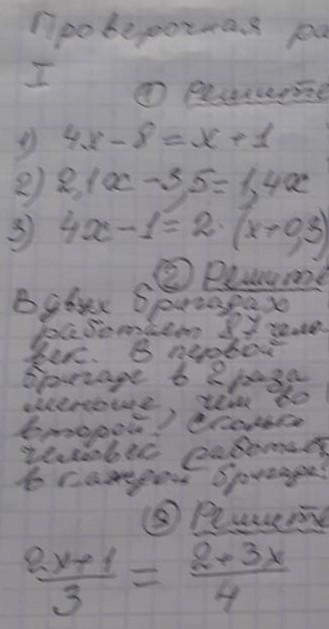 Проверочная ра
I
① Решите
1) 4x - 8 = x + 1
2) 2,1x - 3,5 = 1,4x
3) 4x - 1 = 2 · (x + 0,3)
② Решите
В двух бригадах
работает 27 чело
век. В первой
бригаде в 2 раза
меньше, чем во
второй. Сколько
человек работает
в каждой бригаде
③ Решите
(2x+1)/3 = (2+3x)/4